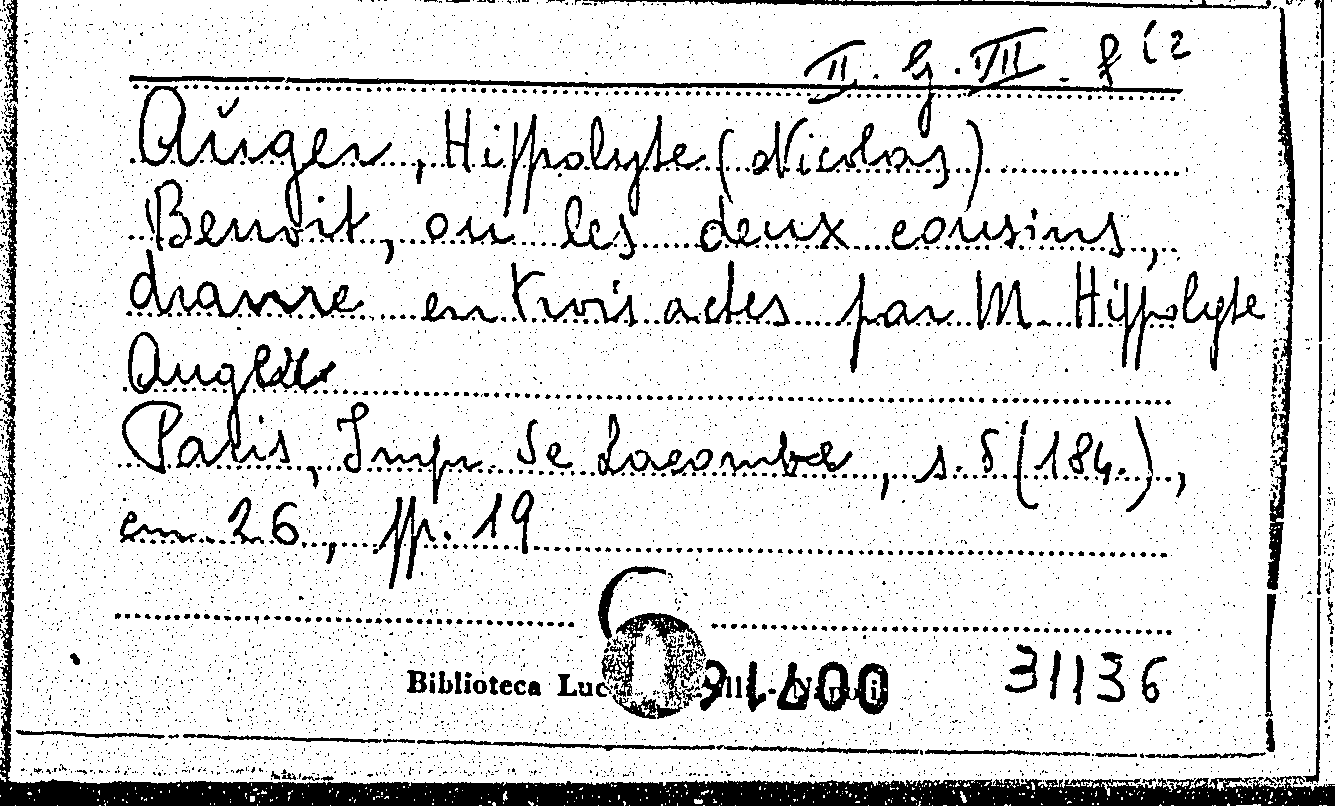 II. G. VII. f (2
Auger, Hippolyte (Nicolas)
Benoit, ou les deux cousins,
drame en trois actes par M. Hippolyte
Auger
Paris, Imp. de Lacombe, s. d (184.),
cm. 26, pp. 19
Biblioteca Luc
31136